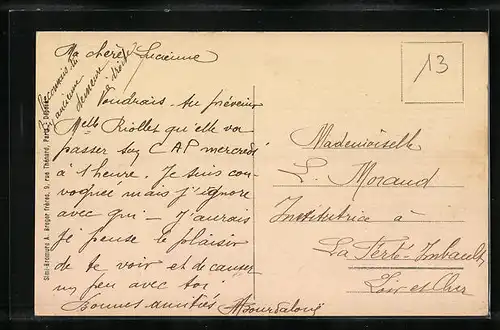 Ma chère Lucienne
Voudrais-tu prévenir
Melle Riollet qu'elle va
passer son CAP mercredi
à 1 heure. Je suis con-
voquée mais j'ignore
avec qui — J'aurais
je pense le plaisir
de te voir et de causer
un peu avec toi
Bonnes amitiés
Reconnais-tu
l'ancienne
demeure
13
Mademoiselle
L. Morand
Institutrice à
La Ferté-Imbault
Loir et Cher
Simi-Bromure A. Breger frères, 9, rue Thénard, Paris. Déposé